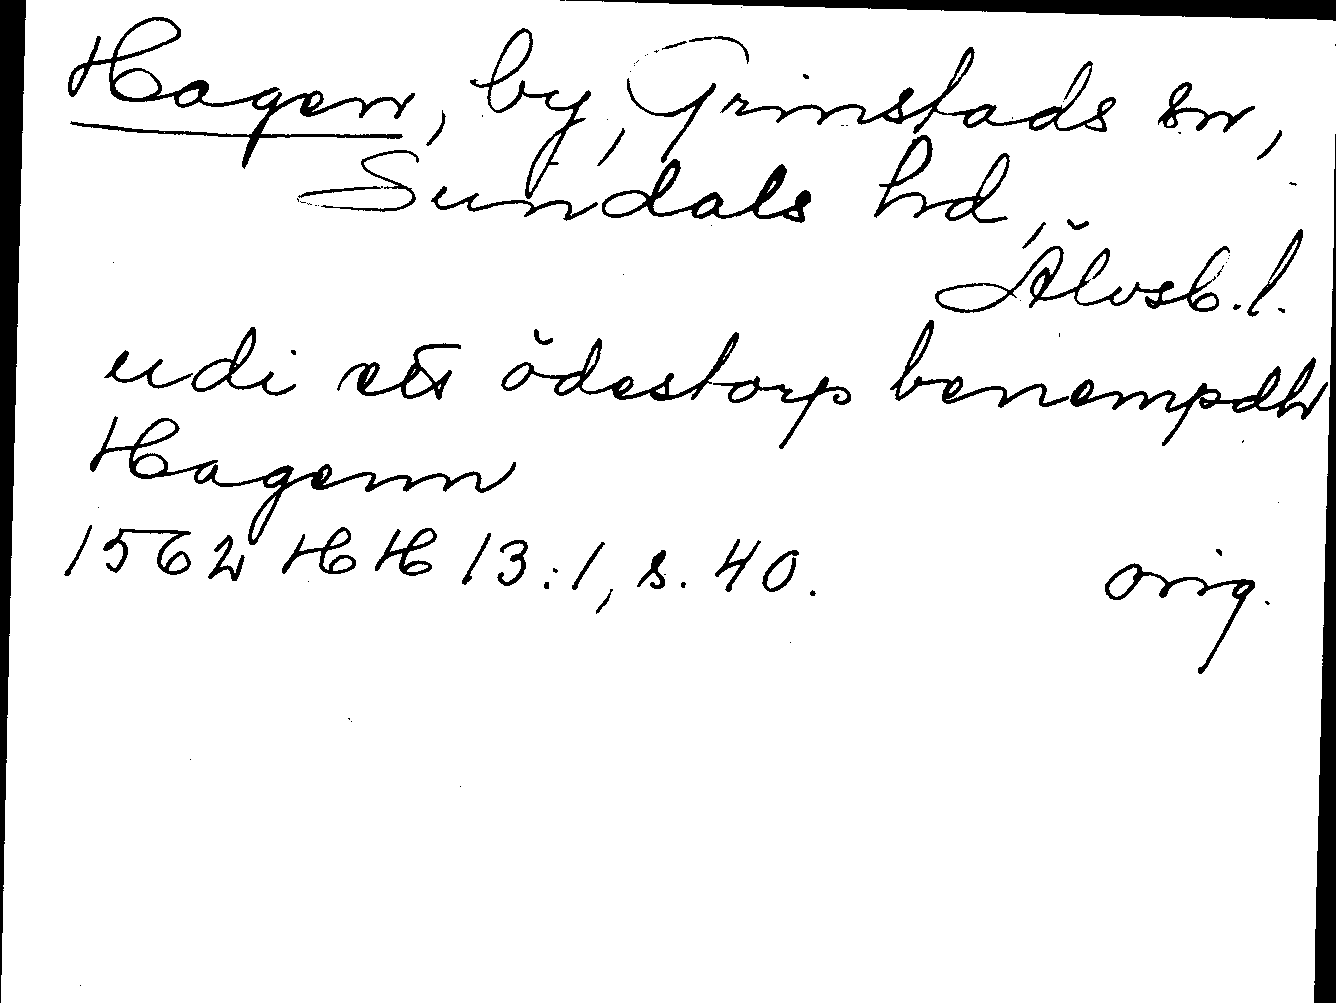 Hagen, by, Grinstads sn,
Sundals hd,
Älvsb.l.
udi ett ödestorp benempdh
Hagenn
1562 HH 13:1, s. 40. orig.